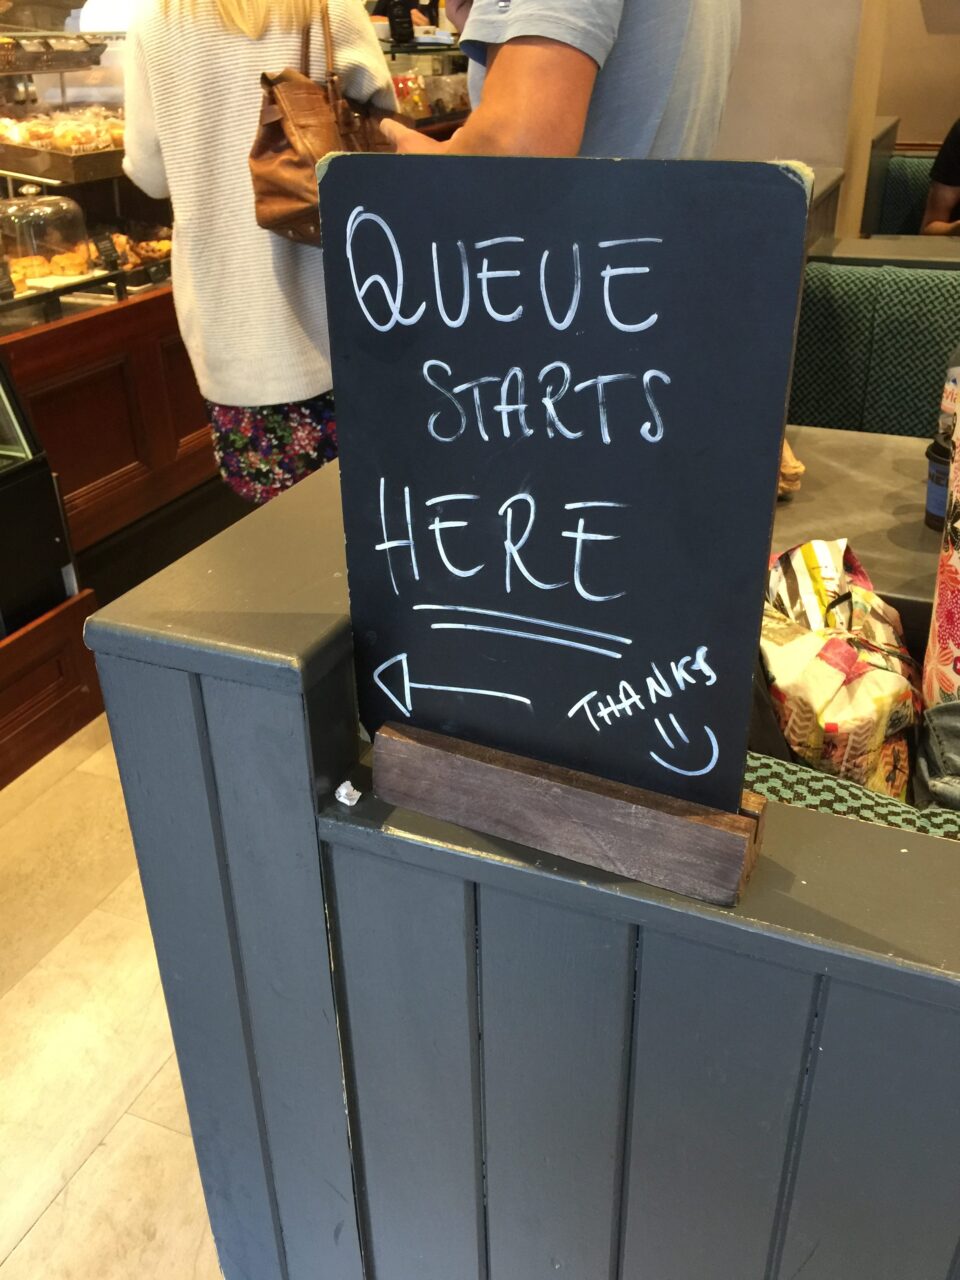 QUEUE
STARTS
HERE
THANKS